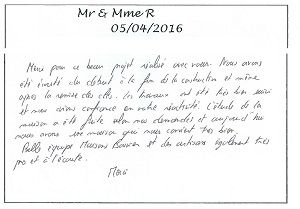 Mr & Mme R
05/04/2016
Merci pour ce beau projet réalisé avec vous. Nous avons
été invité du début à la fin de la construction et même
après la remise des clés. Les travaux ont été très bien suivi
et nous avions confiance en votre réactivité. L'étude de la
maison a été faite selon nos demandes et aujourd'hui
nous avons une maison qui nous convient très bien.
Belle équipe Maisons et des artisans également très
pro et à l'écoute.
Merci